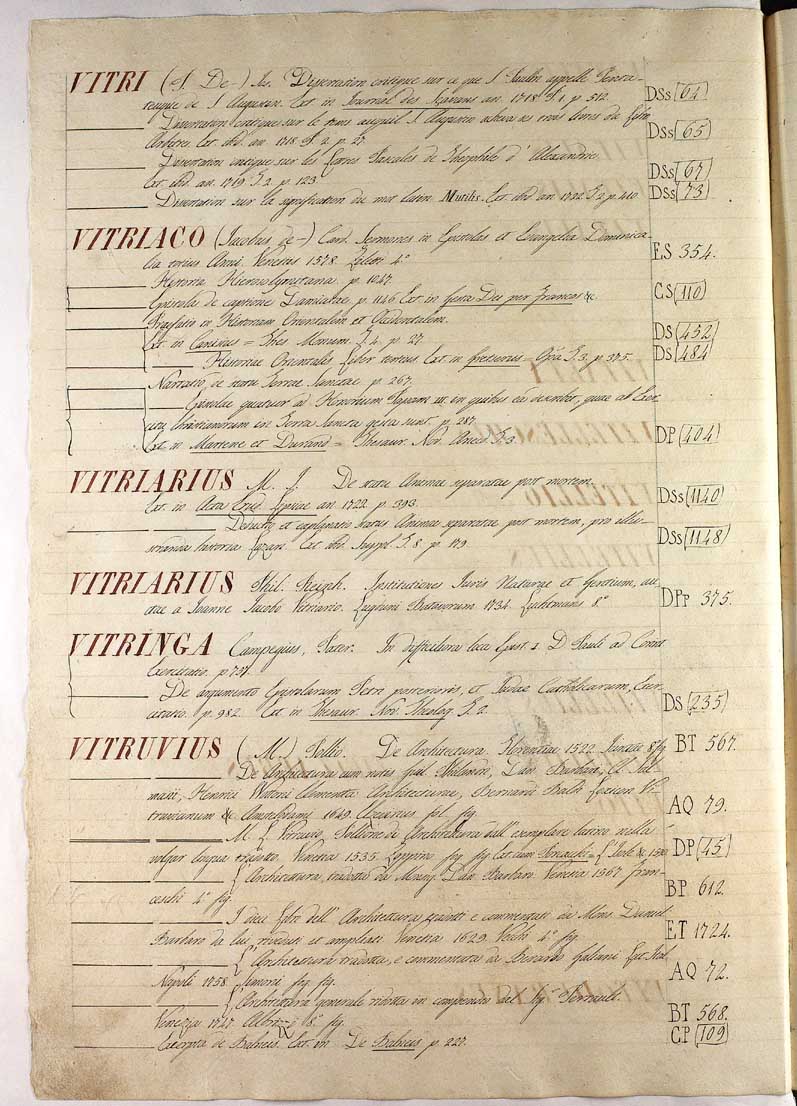 VITRI (J. De-) Dissertation critique sur ce que S Paulin appelle
de S Augustin. Ext in Journal des Scavans an. 1718 T. 1. p 512. DSs (64)
Dissertation critique sur le tems auquel S Augustin acheva ses trois livres du
Arbitre Ext ibid. an. 1718 T. 2 p. 27. DSs (65)
Dissertation critique sur les Lettres Pascales de Theophile d' Alexandrie
Ext ibid. an. 1719 T. 2 p. 123 DSs (67)
Dissertation sur la signification du mot latin Mutilis. Ext ibid an 1722 T. 2 p. 410 DSs (73)
VITRIACO (Jacobus de-) Card. Sermones in Epistolas et Evangelia Dominica-
lia totius Anni. Venetiis 1578. 4° ES 354.
Historia Hierosolymitana p. 1047.
Epistola de captione Damiatae, p. 1146 Ext in Gesta Dei per Francos &c CS (110)
Praefatio in Historiam Orientalem et Occidentalem.
Ext. in Canisius = Thes Monum. T. 4. p. 27 DS (452)
Historiae Orientalis Liber tertius Ext. in Gretserus = Opā T. 3. p. 375. DS (484)
Narratio de statu Terrae Sanctae p. 267
Epistolae quatuor ad Honorium Papam III. in quibus ea describit, quae ab Exer-
citu Christianorum in Terra Sancta gesta sunt. p. 287.
Ext. in Martene et Durand = Thesaur. Nov. Anecd. T. 3 DP (404)
VITRIARIUS M. J. De statu Animae separatae post mortem.
Ext. in Acta Erud. Lipsiae an. 1722 p. 393. DSs (1140)
Defectus et explicatio status Animae separatae post mortem, pro illus-
tranda historia Lazari. Ext ibi. Suppl T. 8. p. 179 DSs (1148)
VITRIARIUS Phil. Reinh. Institutiones Juris Naturae et Gentium, auc-
tae a Joanne Jacobo Vitriario. Lugduni Batavorum 1734. Luchtmans 8° DPp 375.
VITRINGA Campegius, Pater. In difficiliora loca Epist. 1 D Pauli ad Corint
Exercitatio. p 701
De argumento Epistolarum Petri posterioris, et Judae Catholicarum, Exer-
citatio. p. 982. Ext. in Thesaur. Nov. Theolog T. 2 DS (235)
VITRUVIUS (M.) Pollio. De Architectura. Florentiae 1522 Juntae 8° fig BT 567.
De Architectura cum notis Guil. Philandri, Dan Barbari, Cl Sal-
masii, Henrici Wotoni elementa Architecturae, Bernardi Baldi Lexicon Vi-
truvianum &c Amstelodami 1649. Elzevirius fol fig AQ 79.
M. L. Vitruvio, Pollione de Architectura dall' exemplare latino nella
vulgar lingua tradotto. Venezia 1535. Zoppino fig fig Ext cum DP (45)
Architettura, tradotta da Monsig. Dan Barbaro Venezia 1567 Fran-
ceschi 4° fig BP 612.
I dieci Libri dell' Architettura tradotti e commentati da Mons Daniel
Barbaro da lui riveduti et ampliati Venezia 1629. Vecchi 4° fig ET 1724.
Architettura tradotta, e commentata da Berardo Galiani Lat Ital.
Napoli 1758. Simonii fig fig. AQ 72.
Architettura generale ridotta in compendio dal Sig. Perrault.
Venezia 1747 Albrizzi 8° fig. BT 568.
Excerpta de Balneis. Ext. in De Balneis p. 227. CP (109)